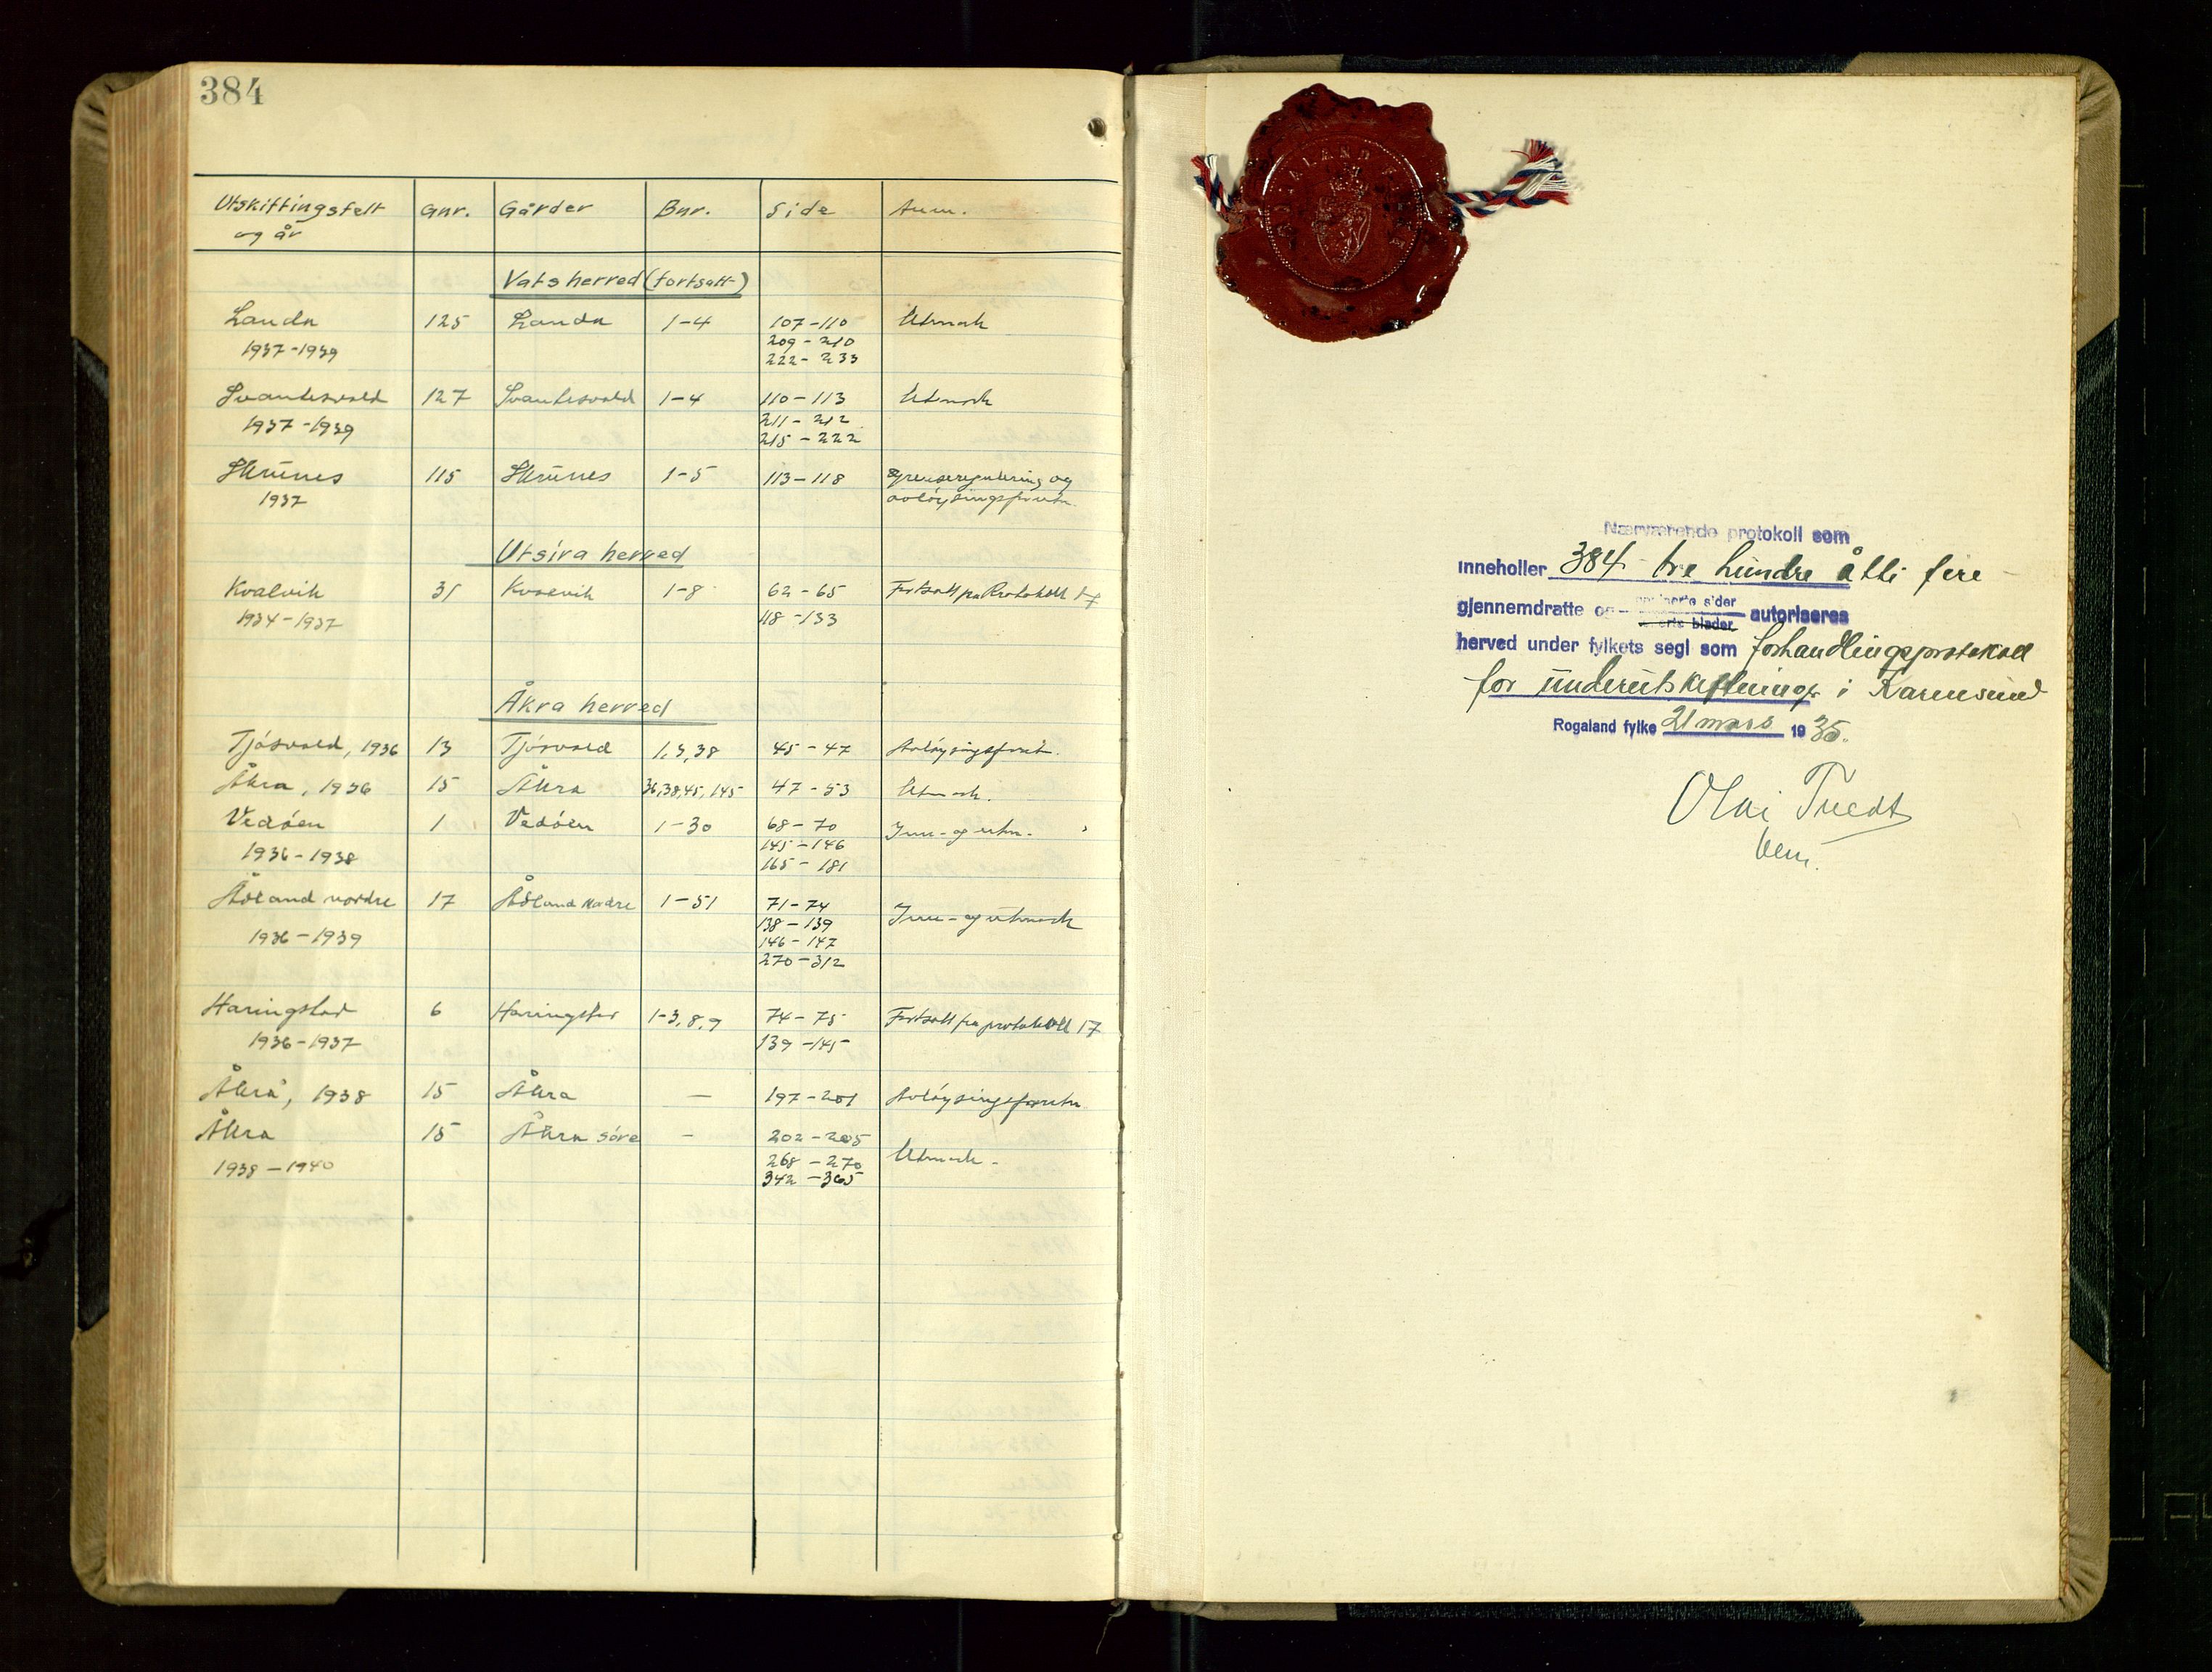 384
Utskiftingsfelt og år Gnr. Gårder Bnr. Side Anm.
Vats herred (fortsatt)
Landa 125 Landa 1-4 107-110 Utmark
1937-1939 209-210
222-233
Svandesvold 127 Svandesvold 1-4 110-113 Utmark
1937-1939 211-212
215-222
115 1-5 113-118 Grenseregulering og
1937 avløysingsforretn.
Utsira herred
Kvalvik 31 Kvalvik 1-8 62-65 Fortsatt fra Protokoll 17
1934-1937 118-133
Åkra herred
Tjøsvold, 1936 13 Tjøsvold 1,3,38 45-47 Avløysingsforretn.
Åkra, 1936 15 Åkra 36,38,45,145 47-53 Utmark.
Vedøen 1 Vedøen 1-30 68-70 Inn- og utm.
1936-1938 145-146
165-181
Ådland nordre 17 Ådland nordre 1-51 71-74 Inn- og utmark
1936-1939 138-139
146-147
270-312
Haringstad 6 Haringstad 1-3,8,9 74-75 Fortsatt fra protokoll 17
1936-1937 139-145
Åkra, 1938 15 Åkra — 197-201 Avløysingsforretn.
Åkra 15 Åkra søre — 202-205
1938-1940 268-270 Utmark.
342-365
ROGALAND FYLKE
Nærværende protokoll som
inneholler 384 tre hundre åtti fire
gjennemdratte og paginerte sider autoriseres
blader
herved under fylkets segl som forhandlingsprotokoll
for underutskiftninger i Karmsund
Rogaland fylke 21 mars 1935.